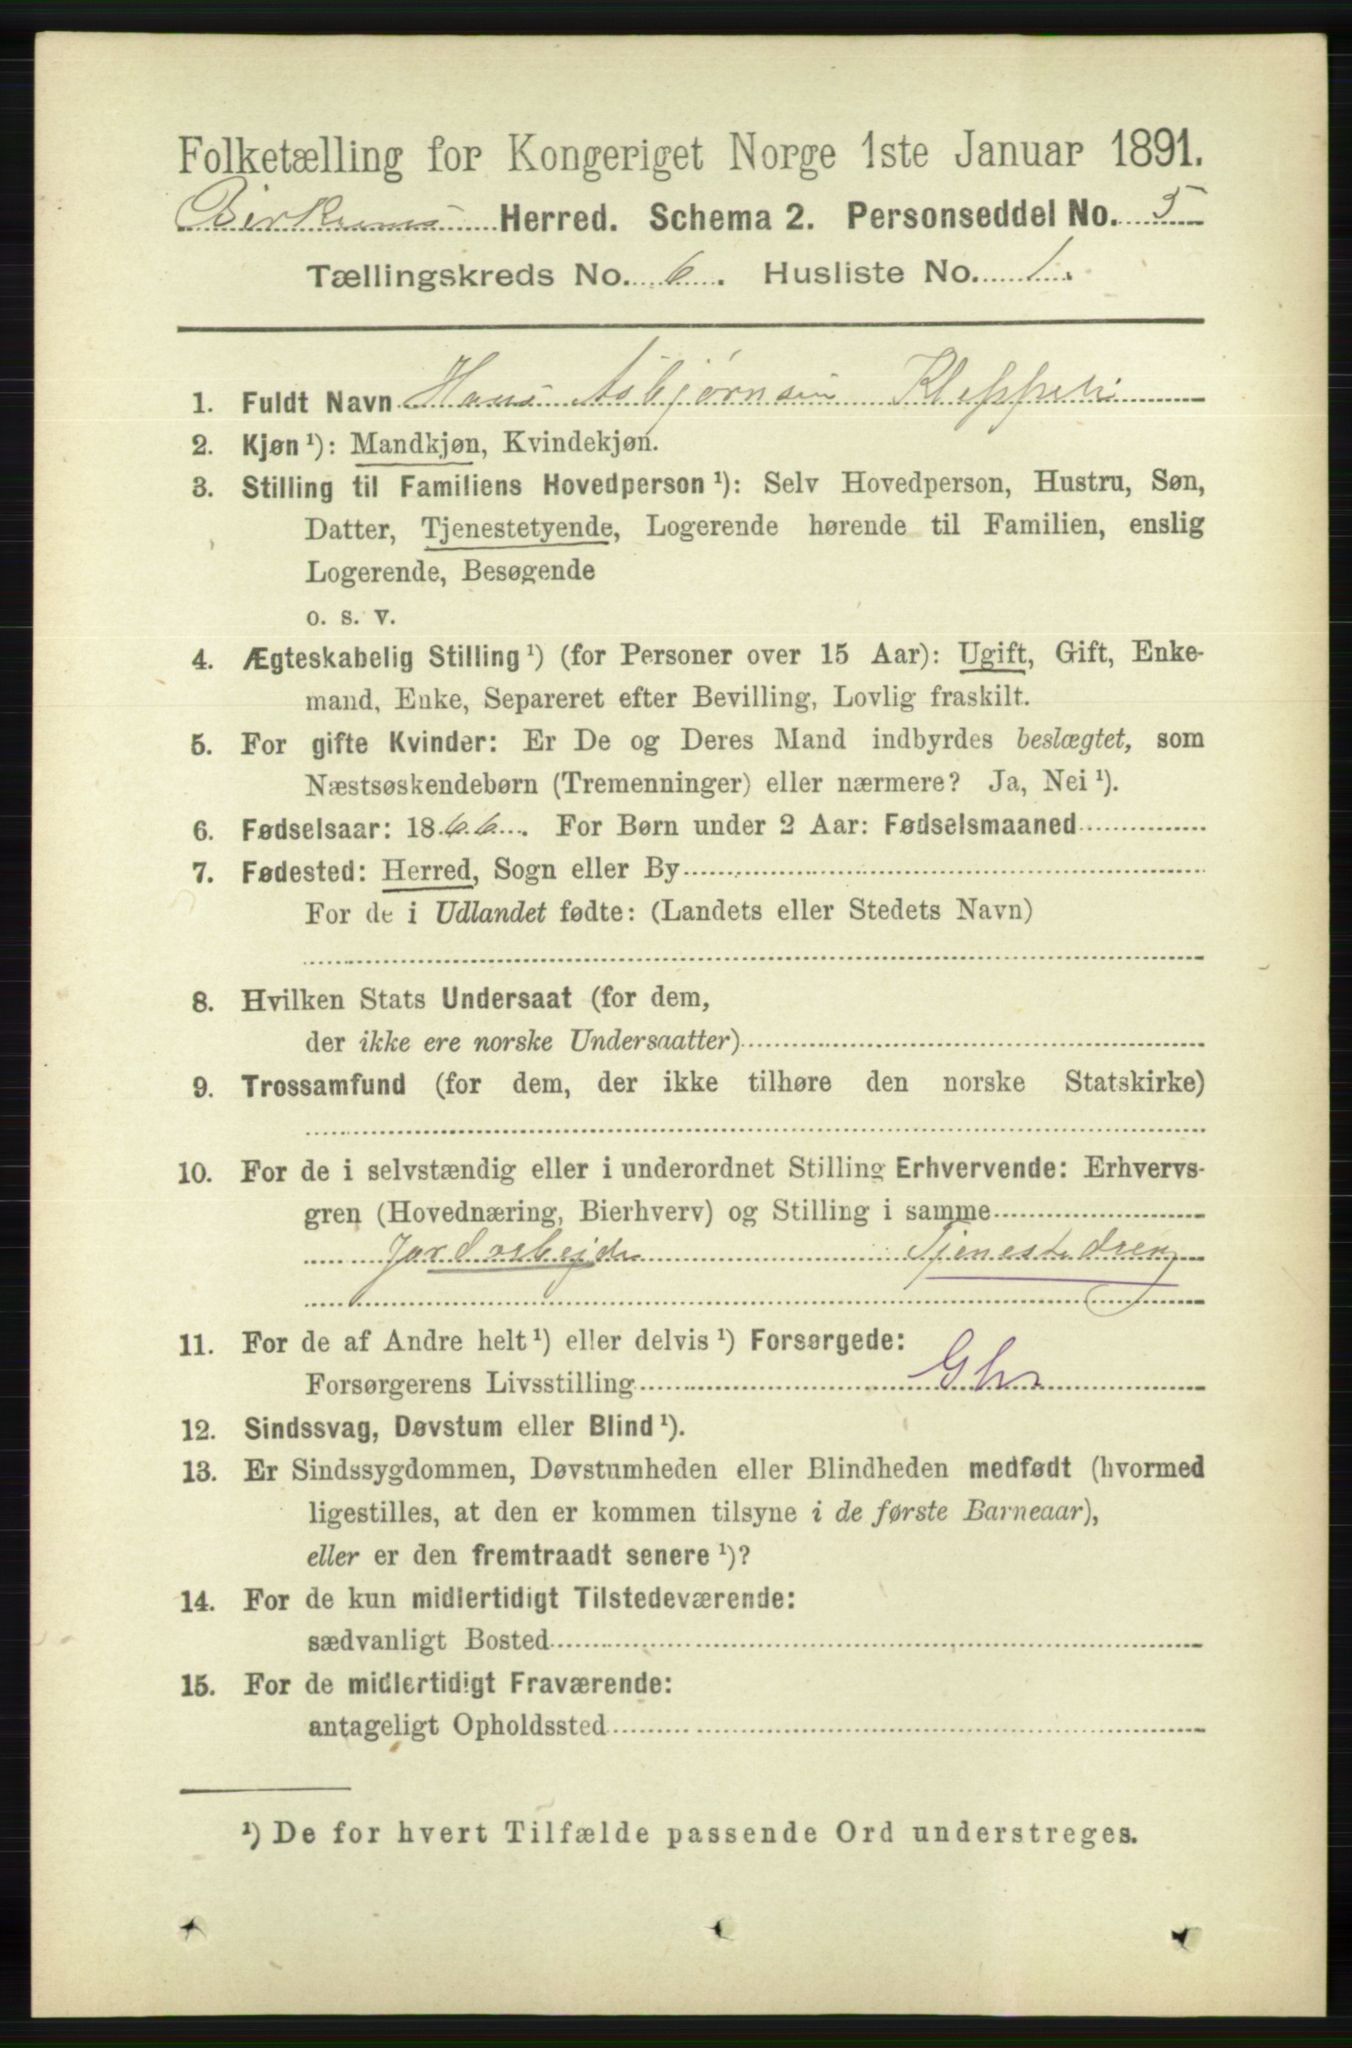 Folketælling for Kongeriget Norge 1ste Januar 1891.
Birkenes Herred. Schema 2. Personseddel No. 5
Tællingskreds No. 6. Husliste No. 1.
1. Fuldt Navn Hans Asbjørnsen Kleppeli
2. Kjøn ¹): Mandkjøn, Kvindekjøn.
3. Stilling til Familiens Hovedperson ¹): Selv Hovedperson, Hustru, Søn,
Datter, Tjenestetyende, Logerende hørende til Familien, enslig
Logerende, Besøgende
o. s. v.
4. Ægteskabelig Stilling ¹) (for Personer over 15 Aar): Ugift, Gift, Enke-
mand, Enke, Separeret efter Bevilling, Lovlig fraskilt.
5. For gifte Kvinder: Er De og Deres Mand indbyrdes beslægtet, som
Næstsøskendebørn (Tremenninger) eller nærmere? Ja, Nei ¹).
6. Fødselsaar: 1866. For Børn under 2 Aar: Fødselsmaaned
7. Fødested: Herred, Sogn eller By
For de i Udlandet fødte: (Landets eller Stedets Navn)
8. Hvilken Stats Undersaat (for dem,
der ikke ere norske Undersaatter)
9. Trossamfund (for dem, der ikke tilhøre den norske Statskirke)
10. For de i selvstændig eller i underordnet Stilling Erhvervende: Erhvervs-
gren (Hovednæring, Bierhverv) og Stilling i samme
Jordarbejde Tjenestedreng
11. For de af Andre helt ¹) eller delvis ¹) Forsørgede:
Forsørgerens Livsstilling
12. Sindssvag, Døvstum eller Blind ¹).
13. Er Sindssygdommen, Døvstumheden eller Blindheden medfødt (hvormed
ligestilles, at den er kommen tilsyne i de første Barneaar),
eller er den fremtraadt senere ¹)?
14. For de kun midlertidigt Tilstedeværende:
sædvanligt Bosted
15. For de midlertidigt Fraværende:
antageligt Opholdssted
¹) De for hvert Tilfælde passende Ord understreges.